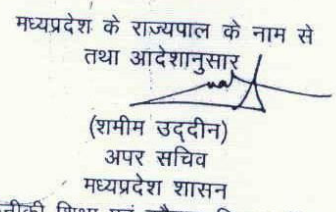 मध्यप्रदेश के राज्यपाल के नाम से
तथा आदेशानुसार
(शमीम उद्दीन)
अपर सचिव
मध्यप्रदेश शासन